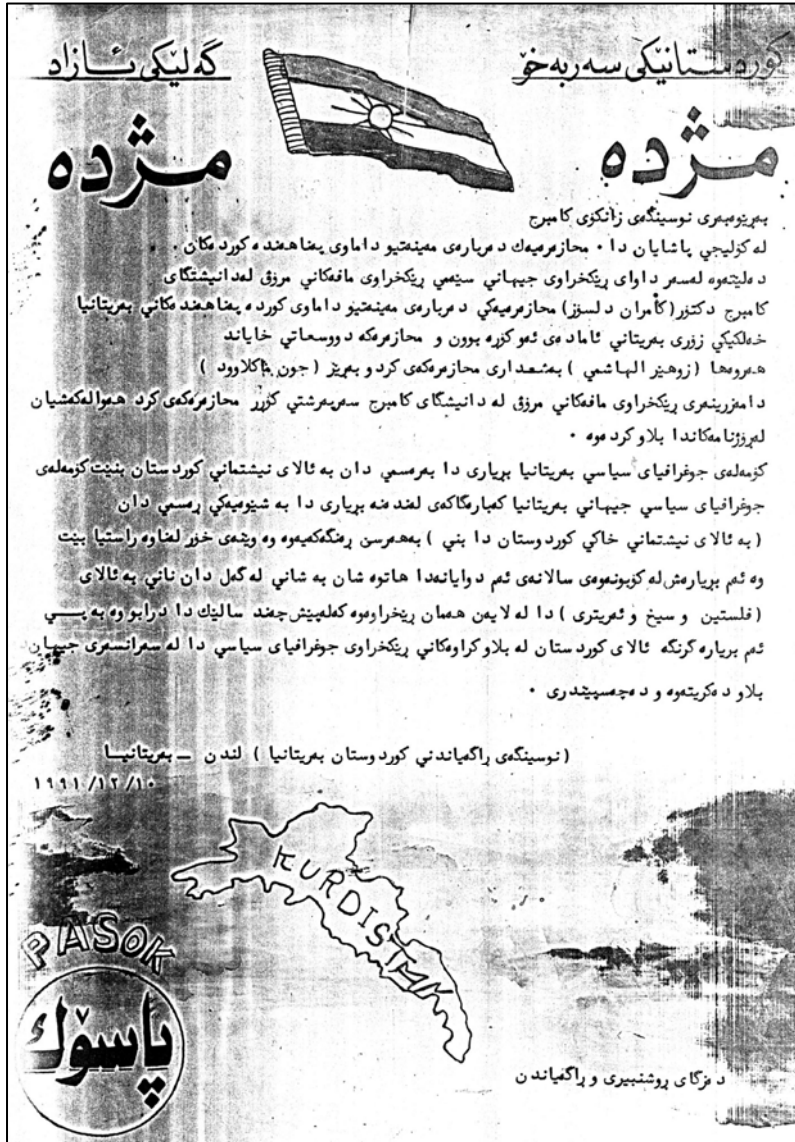 كوردستانێكي سەربەخۆ
گەلێكي ئازاد
مژدە
مژدە
بەڕێوەبەري نوسینگەی زانكۆی كامبرج
لە كۆلیجي پاشایان دا ٠ محازەرەیەك دەربارەی مەینەتیو داماوی پەناهەندە كوردەكان ٠
دەڵێتەوە لەسەر داوای ڕێكخراوی جیهاني سێەمي ڕێكخراوی مافەكاني مرۆڤ لەدانیشتگای
كامبرج دكتۆر (كأمران دلسۆز) محازەرەیەكي دەربارەی مەینەتیو داماوی كوردە پەناهەندەكاني بەریتانیا
خەلكیكي زۆری بەریتاني ئامادەی ئەو كۆڕە بوون و محازەرەكە دووسعاتي خایاند
هەروەها ( زوهێر الهاشمي ) بەشداری محازەرەكەی كرد و بەڕێز ( جون ماكلاوود )
دامەزرینەری ڕێكخراوی مافەكاني مرۆڤ لە دانیشگای كامبرج سەرپەرشتي كۆڕر محازەرەكەی كرد هەوالەكەشیان
لەڕۆژنامەكاندا بلاوكردەوە ٠
كۆمەلەی جوغرافیای سیاسي بەریتانیا بڕیاری دا بەرەسمي دان بە ئالای نیشتماني كوردستان بنێت كۆمەلەی
جوغرافیای سیاسي جیهاني بەریتانیا كەبارەگاكەی لەندەنە بڕیاری دا بە شێوەیەكي ڕەسمي دان
( بە ئالای نیشتماني خاكي كوردوستان دا بني ) بەهەرسێ ڕەنگەكەیەوە وە وێنەی خۆر لەناوەراستیا بێت
وە ئەم بڕیارەش لە كۆبونەوەی سالانەی ئەم دوایانەدا هاتوە شان بە شاني لە گەل دان ناني بە ئالای
( فلستین و سیخ و ئەریتری ) دا لە لایەن هەمان ڕێخراوەوە كەلەپێش چەند سالێك دا درابو وە بە پـــــي
ئەم بڕیارە گرنگە ئالای كوردستان لە بلاوكراوەكاني ڕێكخراوی جوغرافیای سیاسي دا لە سەرانسەری جیهان
بلاو دەكریتەوە و دەچەسپێندری ٠
( نوسینگەی ڕاگەیاندني كوردوستان بەریتانیا ) لندن ــ بەریتانیـا
١٩٩١/١٢/١٠
KURDISTAN
PASOK
پاسۆك
دەزگای ڕوشنبیری و ڕاگەیاندن